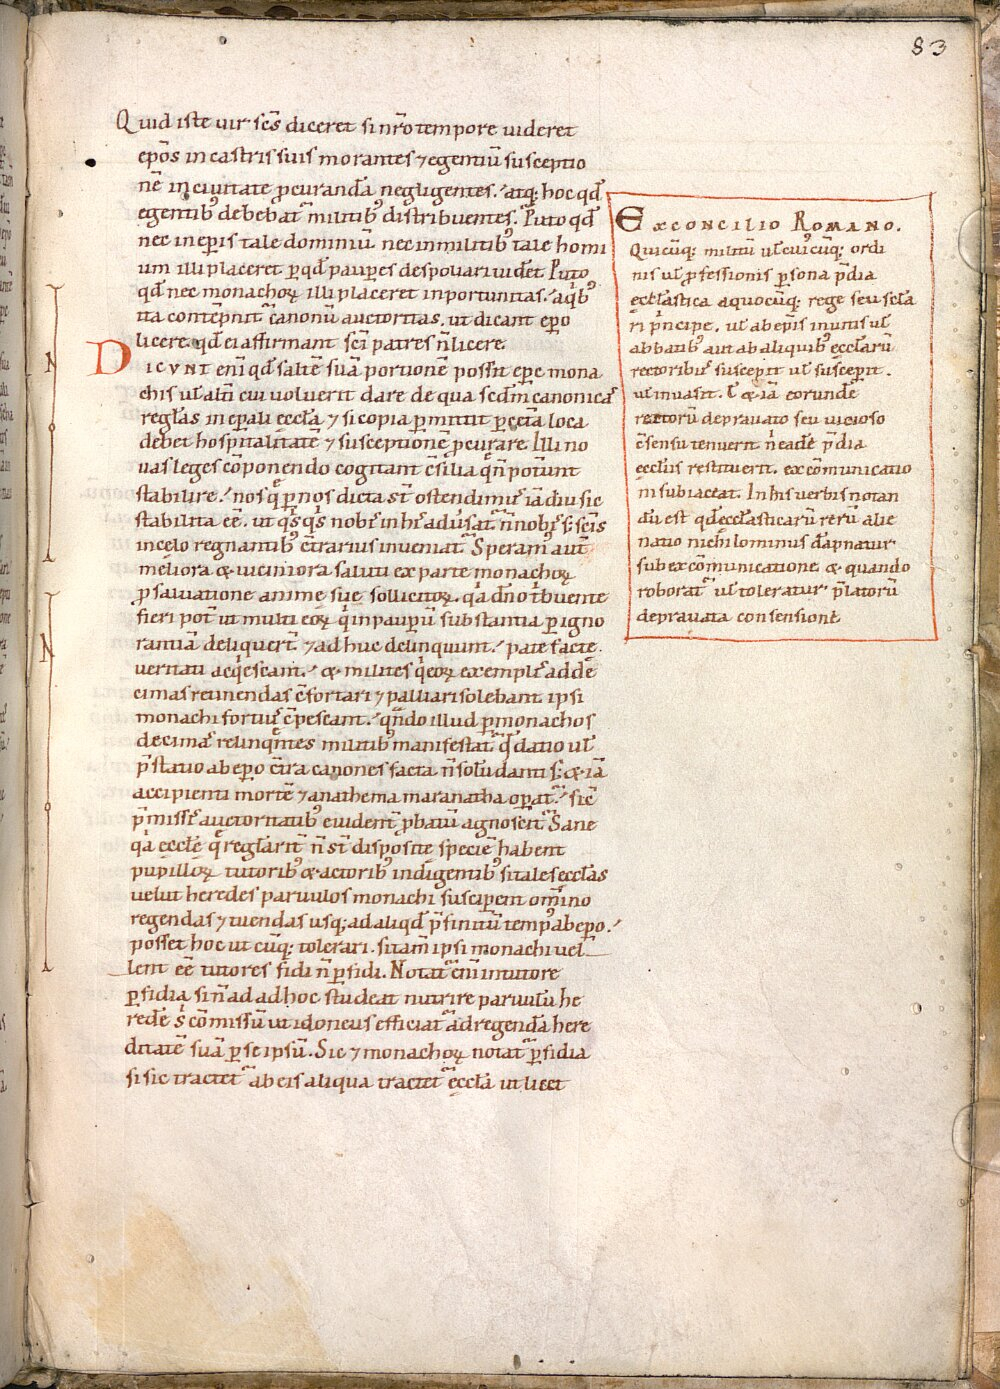 83
Quid iste uir sc̄s diceret si nr̄o tempore uideret
ep̄os in castris suis morantes ⁊ egentiū susceptio
nē in ciuitate ꝓcurandā negligentes. atq; hoc qd̄
egentib; debebat̄ militib; distribuentes. Puto qd̄
nec in ep̄is tale dominiū nec in militib; tale homi
um illi placeret ꝑ qd̄ pauꝑes despoliari uidet Puto
qd̄ nec monachoꝝ illi placeret inportunitas. a qb;
ita contēpnit̄ canonū auctoritas. ut dicant ep̄o
licere. qd̄ ei affirmant sc̄i patres n̄ licere.
Dicunt eni qd̄ saltē suā portionē possit ep̄c mona
chis ul̄ alii cui uoluerit dare de qua scd̄m canonicas
regl̄as in ep̄ali eccl̄a ⁊ si copia ꝑmittit ꝑ cetā loca
debet hospitalitatē ⁊ susceptionē ꝓcurare. Illi no
uas leges cōponendo cogitant c̄silia qn̄ pot̄unt
stabilire. nos q ꝑ nos dicta st̄ ostendim; iā diu sic
stabilita eē. ut qs̄qs̄ nob̄ in hr̄ aduersat̄ n̄ nob̄ s; sc̄is
in celo regnantib; c̄trarius inueniat̄. Speram; aut̄
meliora & uiciniora saluti ex parte monachoꝝ
ꝓ saluatione anime sue sollicitoꝝ. qa dn̄o tribuente
fieri pot̄ ut multi eoꝝ qi in pauꝑū substantia ꝑ igno
rantiā deliquert̄ ⁊ adhuc delinquunt. patefacte
ueritati acqiescant. & milites qi eoꝝ exemplis ad de
cimas retinendas c̄fortari ⁊ palliari solebant ipsi
monachi fortit̄ c̄pescant. qn̄do illud ꝑ monachos
decimas relinqntes militib; manifestat̄ qd̄ datio ul̄
p̄statio ab ep̄o c̄tra canones facta n̄ solū danti s; & iā
accipienti mortē ⁊ anathema maranatha oꝑat̄. sic̄
p̄missis auctoritatib; euident̄ ꝓbatū agnoscit̄ Sane
qa eccl̄e q regl̄arit̄ n̄ st̄ disposite speciē habent
pupilloꝝ tutorib; & actorib; indigentib; si tales eccl̄as
uelut heredes paruulos monachi susciperent om̄ino
regendas ⁊ tuendas usq; ad aliqd̄ p̄finitū temp; ab ep̄o.
posset hoc utcūq; tolerari. si tam̄ ipsi monachi uel
lent eē tutores fidi n̄ ꝑfidi. Notat̄ eni in tutore
ꝑfidia si n̄ ad adhoc studeat nutrire paruulū he
redē s̄ cōmissū ut idoneus efficiat̄ ad regendā here
ditatē suā ꝑ se ipsū. Sic ⁊ monachoꝝ notat̄ ꝑfidia
si sic tractet̄ ab eis aliqua tractet̄ eccl̄a ut licet
Ex concilio Romano.
Quicūq; militū ul̄ cuiuscūq; ordi
nis ul̄ ꝓfessionis ꝑsona p̄dia
eccl̄astica a quocūq; rege seu secla
ri p̄ncipe. ul̄ ab ep̄is inuitis ul̄
abbatib; aut ab aliquib; eccl̄arū
rectorib; suscepit ul̄ susceꝑit.
ul̄ inuasit. ul̄ & iā eorundē
rectorū deprauato seu uicioso
c̄sensu tenuerit n̄ eadē p̄dia
eccl̄iis restituerit. excōmunicatio
ni subiaceat. In his uerbis notan
dū est qd̄ eccl̄asticarū rerū alie
natio nichilominus dāpnatur
sub excōmunicatione & quando
roborat̄ ul̄ toleratur p̄latorū
deprauata consensione
N
N